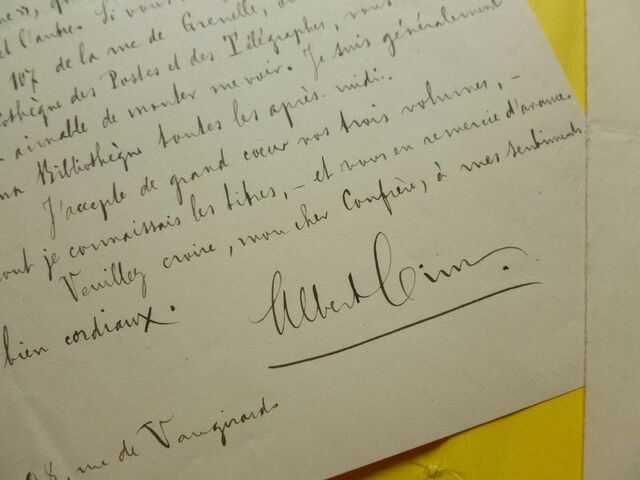 et l'autre. Si vous
107 de la rue de Grenelle,
Bibliothèque des Postes et des Télégraphes, vous
aimable de monter me voir. Je suis généralement
ma Bibliothèque toutes les après-midi.
J'accepte de grand cœur vos trois volumes, –
dont je connaissais les titres, – et vous en remercie d'avance.
Veuillez croire, mon cher Confrère, à mes sentiments
bien cordiaux.
Albert Cim.
rue de Vaugirard.